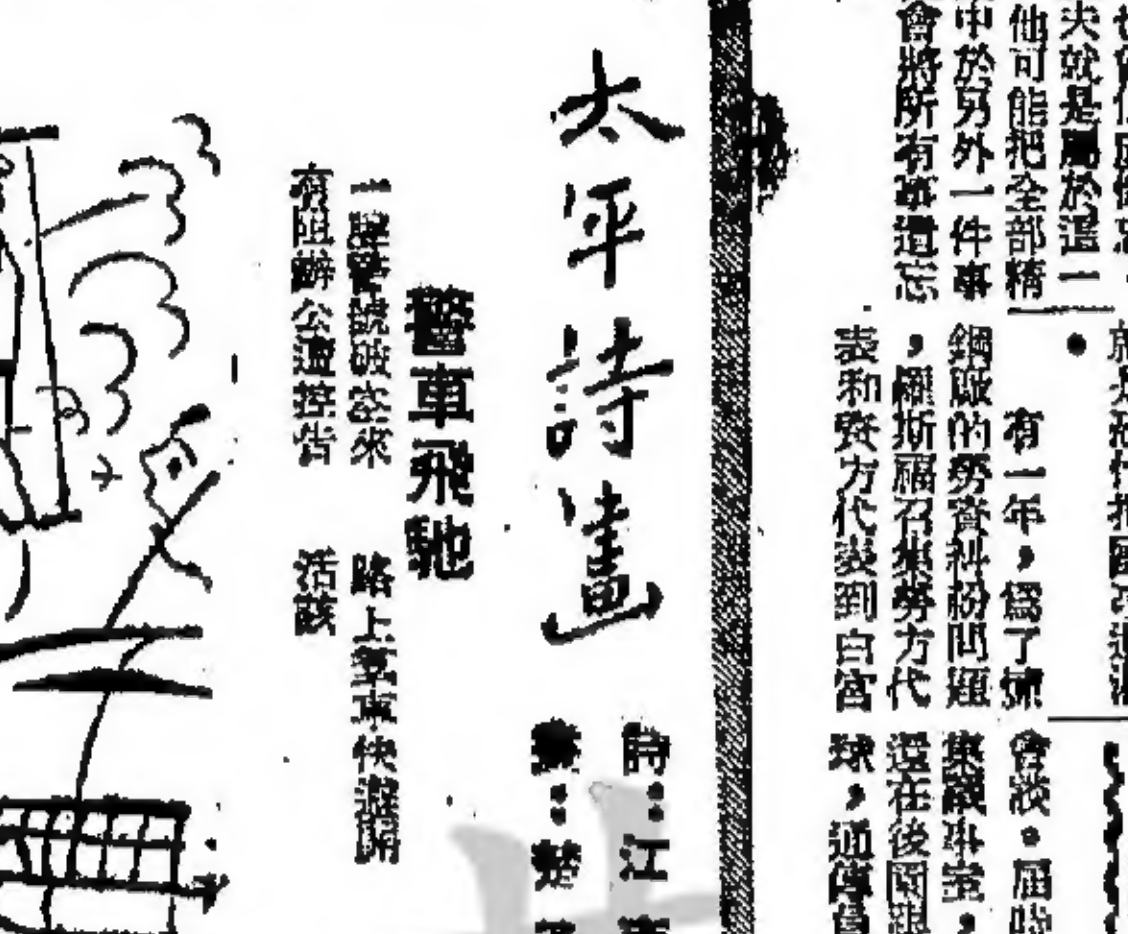 夫就是屬於這一
他可能把全部精
中於另外一件事
會將所有事遺忘
有一年，爲了
鋼廠的勞資糾紛問題
，羅斯福召集勞方代
表和資方代表到白宮
會談。屆時
議事室，
還在後園
球，通
太平詩畫
詩：江
畫：楚
警車飛馳
一陣警號破空來
路上羣車快避開
有阻辦公遭控告
活該